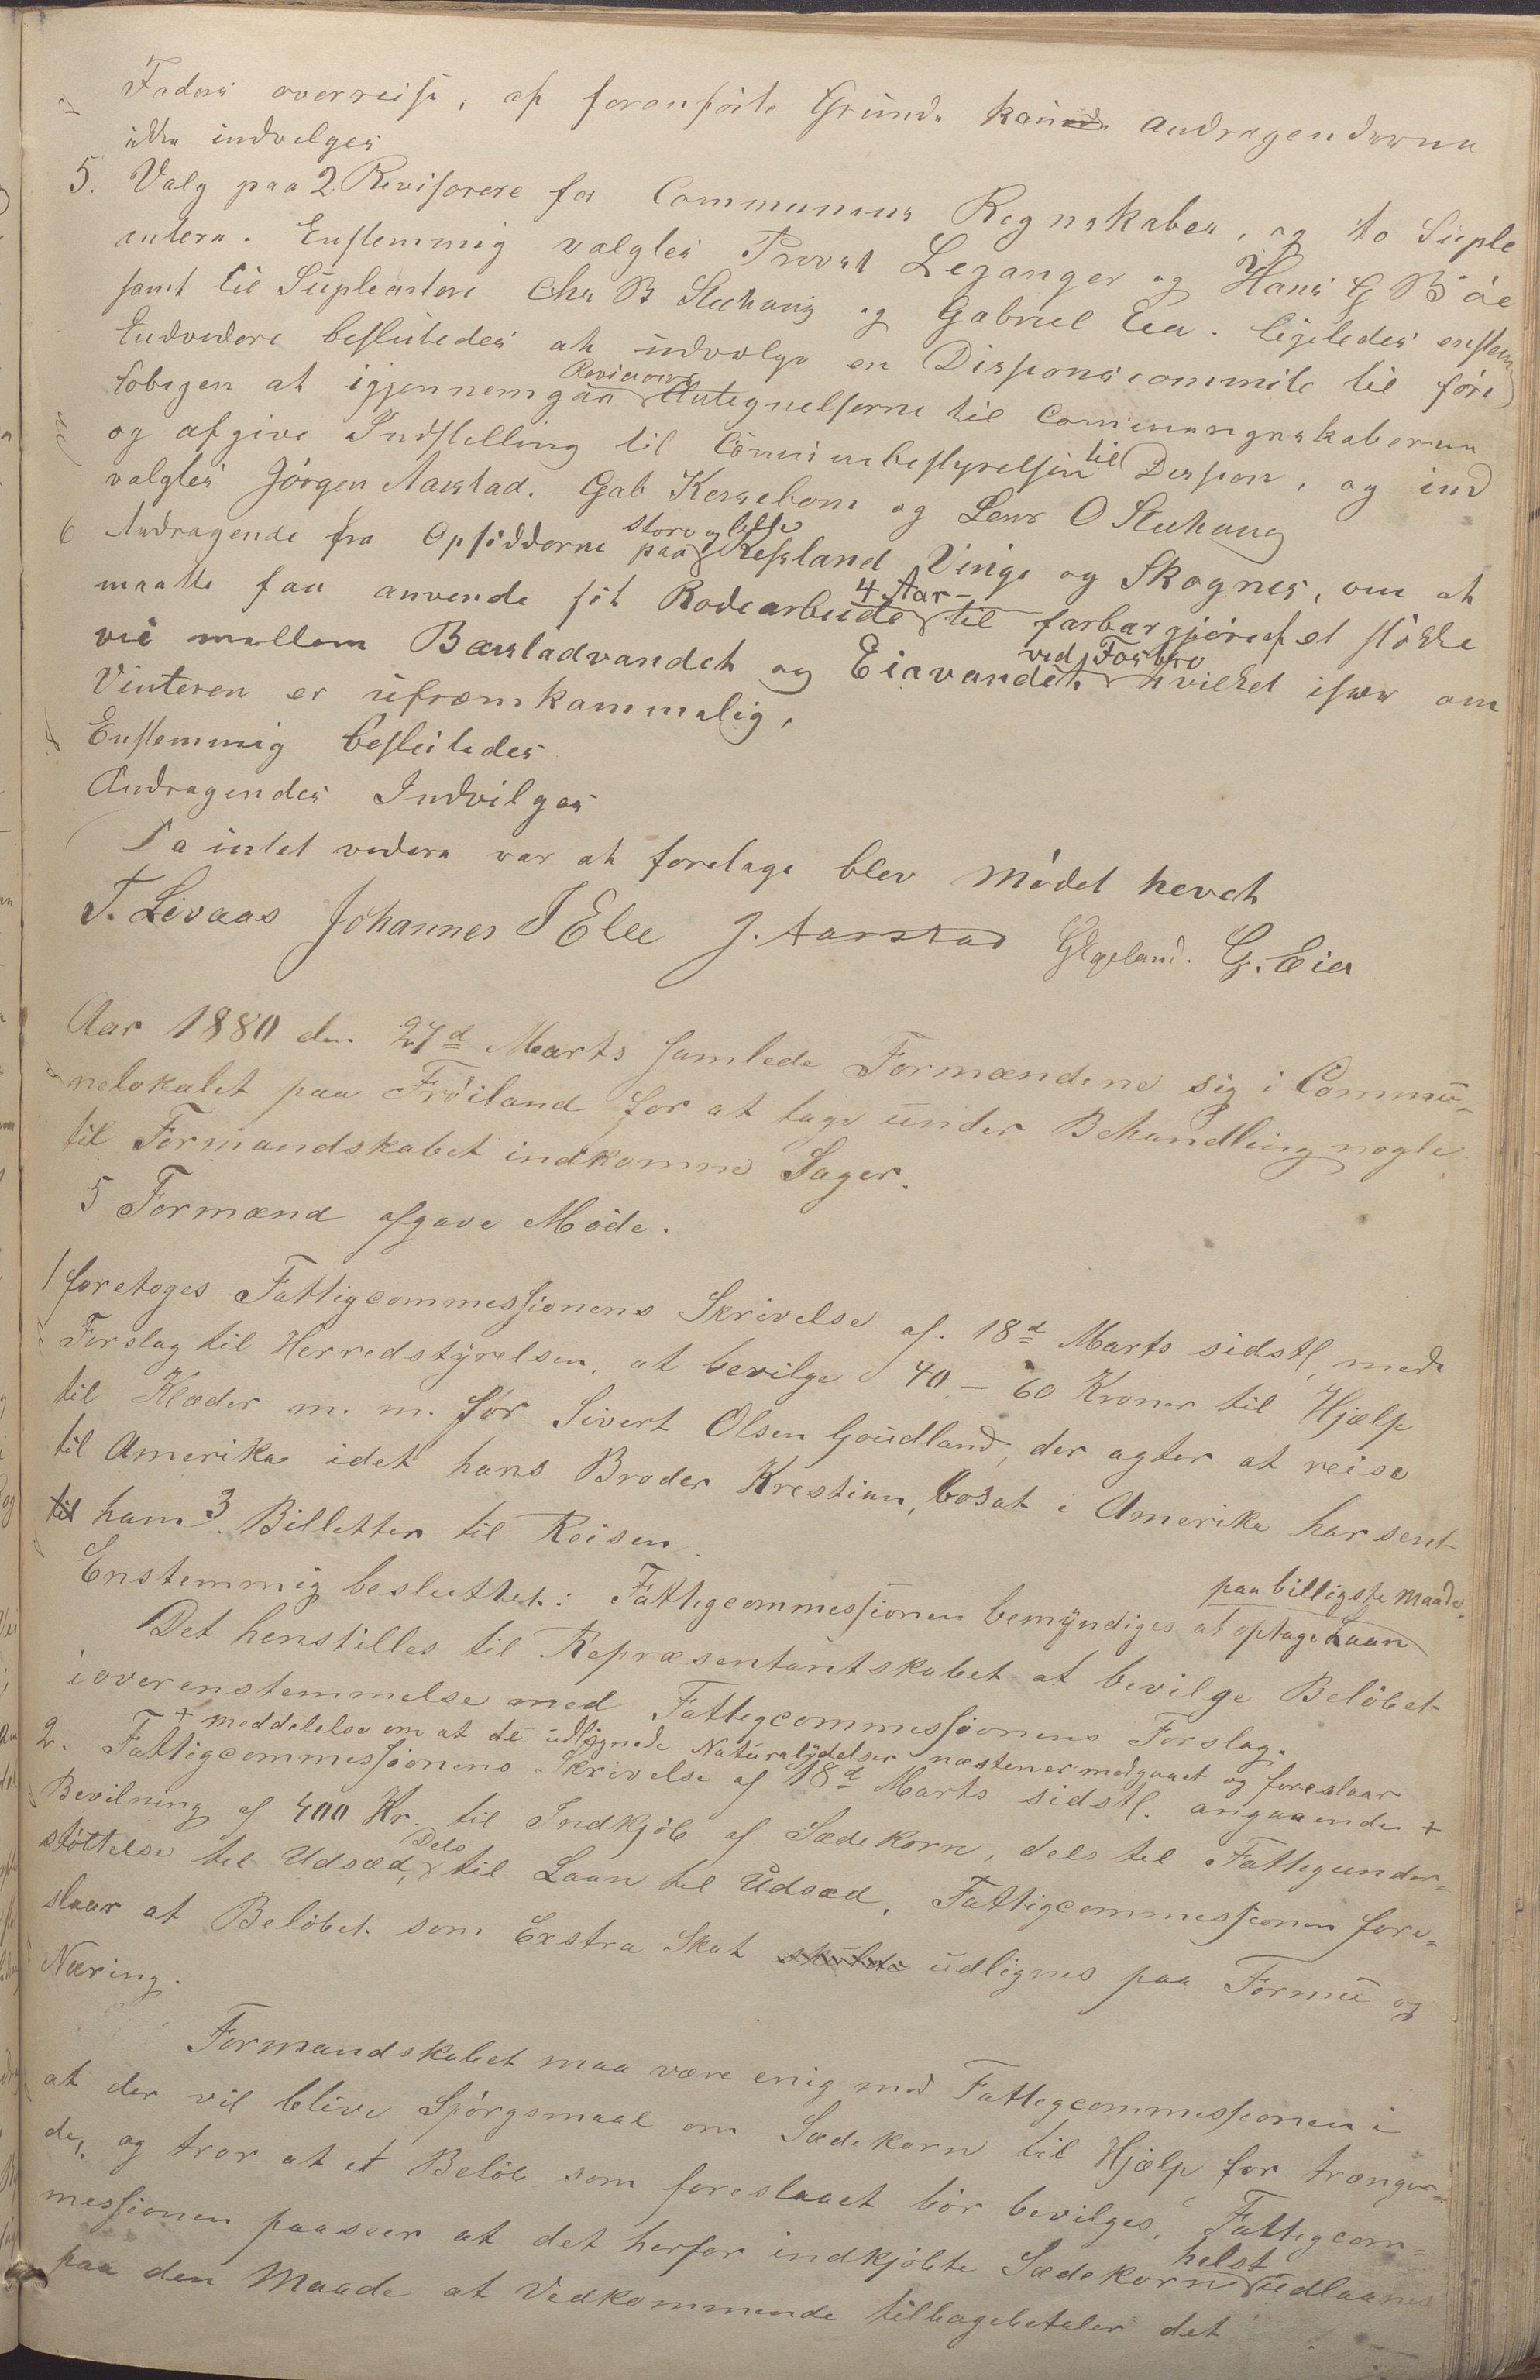 Faders overreise, af foranførte Grunde kan Andragenderne
ikke indvelges
5. Valg paa 2 Revisorere for Communens Regnskaber, og to Suple
anterer. Enstemmig valgtes Provst Leganger og Hans G Bøe
samt til Supleantere Chr B Steehaug og Gabriel Eia. ligeledes enstem
Endvedere besluttedes at udvælge en Disponscommite til føre
lobegen at igjennemgaa Revisions Antegnelserne til Communregnskaberne
og afgive Indstilling til Communebestyrelsen til Dispon, og ind
valgtes Jørgen Aarstad. Gab Kersebom og Lens O Steehaug
6 Andragende fra Opsidderne paa store og lille Refsland Vinge og Skognes, om at
maatte faa anvende sit Rodearbeide 4 Aar til farbargjørelse et støkke
vei mellem Barstadvandet og Eiavandet ved Fosbro hvilket især om
Vinteren er ufremkommelig,
Enstemmig besluttedes
Andragendes Indvilges
Da intet vedere var at foretage blev mødet hevet
T. Livaas Johannes T Elle J. Aarstad GEgeland. G. Eia
Aar 1880 den 27d Marts samlede Formændene sig i Commu-
nelokalet paa Frøiland for at tage under Behandling nogle
til Formandskabet indkomne Sager.
5 Formænd afgave Møde.
1 foretoges Fattigcommessionens Skrivelse af. 18d Marts sidstl, med
Forslag til Herredstyrelsen, at bevilge 40 – 60 Kroner til Hjælp
til Klæder m. m. for Sivert Olsen Goudland, der agter at reise
til Amerika idet hans Broder Krestian, bosat i Amerika har sent
til ham 3 Billetter til Reisen.
Enstemmig besluttet: Fattigcommessionen bemyndiges at optage Laan paa billigste Maade.
Det henstilles til Repræsentantskabet at bevilge Beløbet
i overenstemmelse med Fattigcommessionens Forslag.
+ meddelelse om at de udlignede Naturalydelser næsten er medgaaet og foreslaar
2. Fattigcommessionens Skrivelse af 18d Marts sidstl. angaaende +
Bevilning af 400 Kr. til Indkjøb af Sædekorn, dels til Fattigunder-
støttelse til Udsæd, Dels til Laan til Udsæd, Fattigcommessionen fore-
slaar at Beløbet som Exstra Skat skulde udlignes paa Formu og
Næring.
Formandskabet maa være enig med Fattigcommessionen i
at der vil blive Spørgsmaal om Sædekorn til Hjælp for trængen-
de, og tror at et Beløb som foreslaaet bør bevilges, Fattigcom-
messionen paasser at det herfor indkjøbte Sædekorn helst udlaanes
paa den Maade at Vedkommende tilbagebetaler det